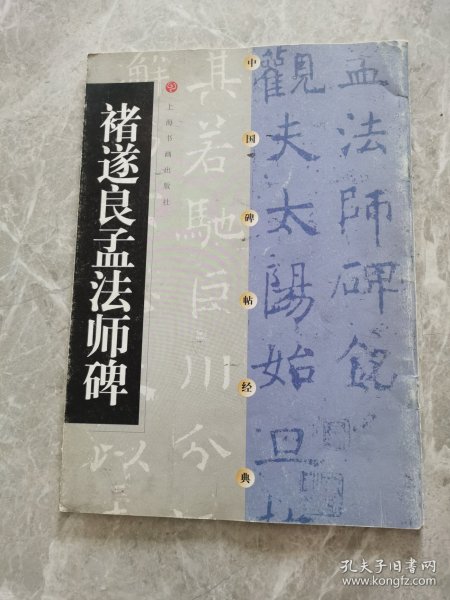 褚遂良孟法师碑
上海书画出版社
中国碑帖经典
孟法師碑銘
觀夫太陽始旦
其若馳巨川
分
以
孔夫子旧书网
www.kongfz.com